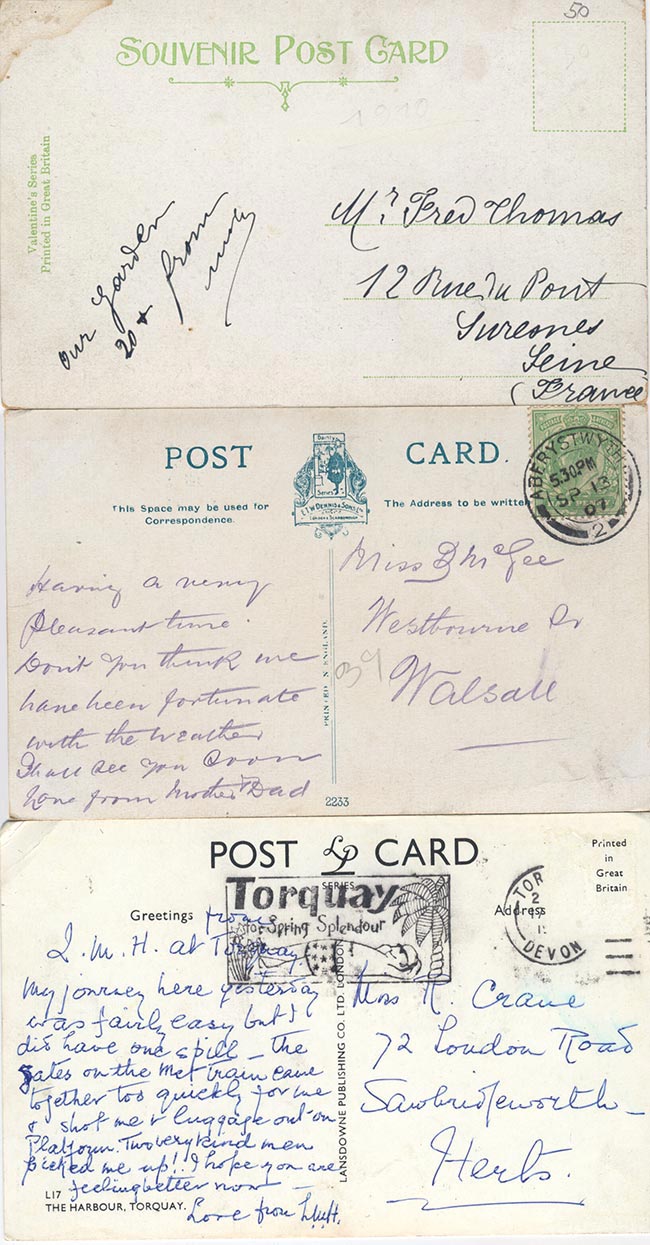 50
SOUVENIR POST CARD
1910
Valentine's Series
Printed in Great Britain
our garden
20 & from
Mr. Fred Thomas
12 Rue du Pont
Suresnes
Seine
(France
POST CARD.
Dainty
Series
E.T.W. DENNIS & SONS LTD
LONDON & SCARBOROUGH
This Space may be used for
Correspondence.
The Address to be written
ABERYSTWYTH
5.30PM
SP 13
07
2
Having a very
pleasant time.
Don't you think we
have been fortunate
with the weather
Shall see you soon
Love from Mother & Dad
PRINTED IN ENGLAND
Miss B McGee
Westbourne
Walsall
2233
POST LP CARD
SERIES
Printed
in
Great
Britain
Torquay
for Spring Splendour
TOR
2
DEVON
Greetings from
Address
L.M.H. at Torquay
My journey here yesterday
was fairly easy but I
did have one spill – the
gates on the Met train came
together too quickly for me
& shot me & luggage out on
Platform. Two very kind men
picked me up!! I hope you are
feeling better now –
Love from L.M.H.
LANSDOWNE PUBLISHING CO. LTD. LONDON
Miss N. Crane
72 London Road
Sawbridgeworth –
Herts.
L17
THE HARBOUR, TORQUAY.